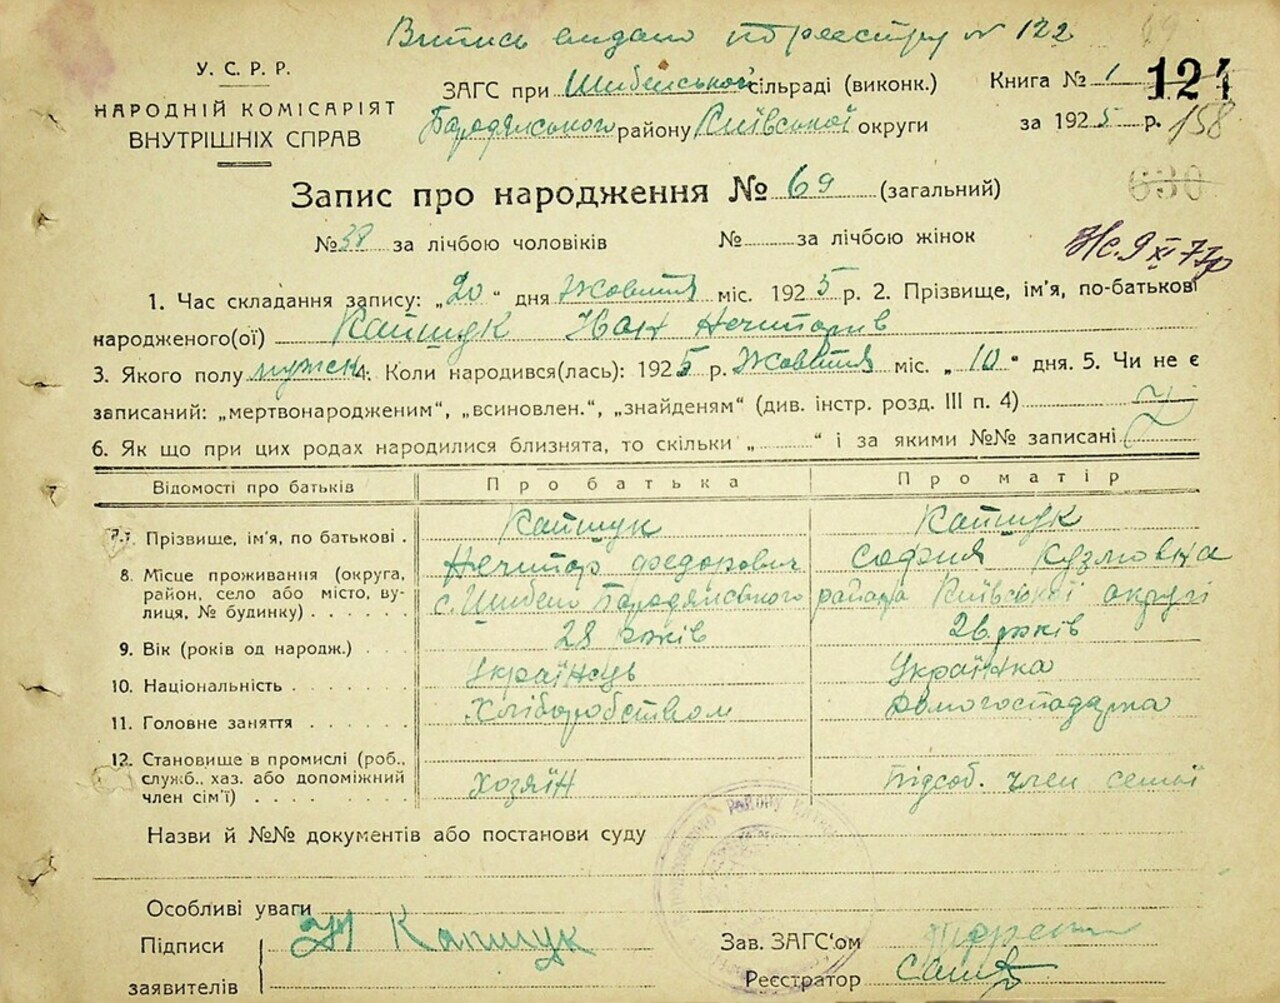 Витись видано по реестру № 122
У. С. Р. Р.
НАРОДНІЙ КОМІСАРІЯТ
ВНУТРІШНІХ СПРАВ
ЗАГС при Шибенської сільраді (виконк.)
Бородянського району Київської округи
Книга № 1 124
за 1925 р. 158
Запис про народження № 69 (загальний)
630
№ 38 за лічбою чоловіків № за лічбою жінок
1. Час складання запису: „20“ дня Жовтня міс. 1925 р. 2. Прізвище, ім'я, по-батькові
народженого(ої) Капшук Іван Нечипорів
3. Якого полу мужск. 4. Коли народився(лась): 1925 р. Жовтня міс. „10“ дня. 5. Чи не є
записаний: „мертвонародженим“, „всиновлен.“, „знайденям“ (див. інстр. розд. III п. 4)
6. Як що при цих родах народилися близнята, то скільки „ “ і за якими №№ записані
Відомості про батьків Про батька Про матір
7. Прізвище, ім'я, по батькові . Капшук Нечипор Федорович Капшук София Кузмовна
8. Місце проживання (округа, район, село або місто, вулиця, № будинку) . . . . . с. Шибені Бородянського района Київської округи
9. Вік (років од народж.) . . . 28 років 26 років
10. Національність . . . . . . . Українець Українка
11. Головне заняття . . . . . . Хліборобством Домогосподарка
12. Становище в промислі (роб., служб., хаз. або допоміжний член сім'ї) . . . . . . . . Хозяїн Підсоб. член семії
Назви й №№ документів або постанови суду
Особливі уваги
Підписи Н Капшук
заявителів
Зав. ЗАГС'ом
Реєстратор